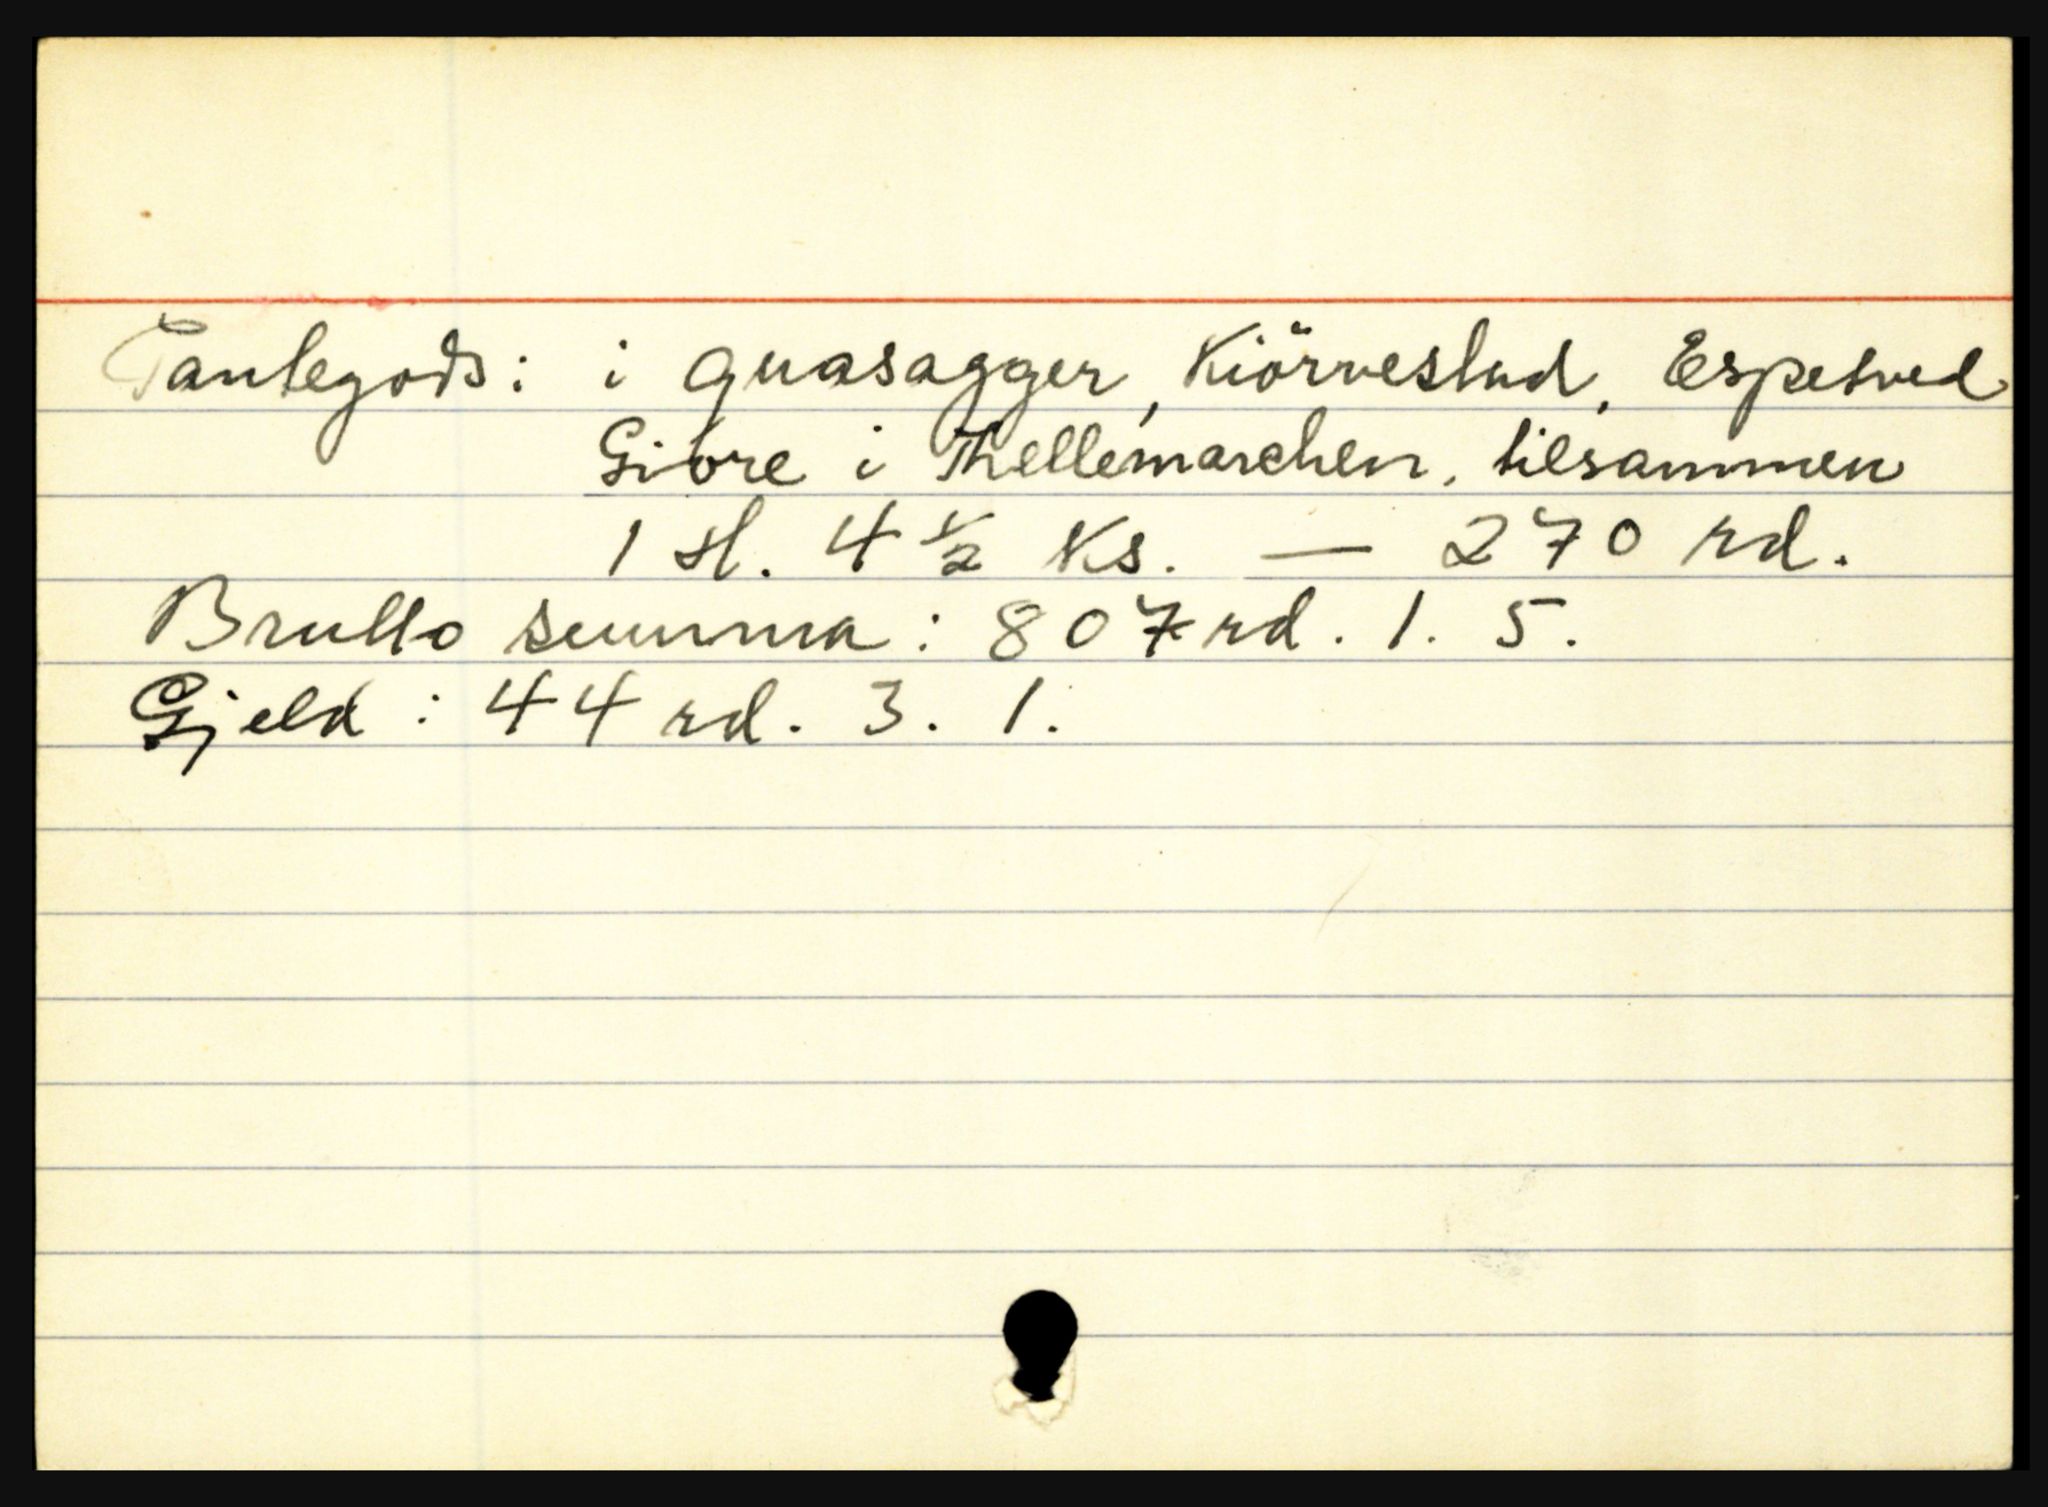 Pantegods: i Quasagger, Kiörvestad, Espetved
Givre i Thellemarchen, tilsammen
1 sl. 4 1/2 Ks. — 270 rd.
Brutto summa: 807 rd. 1. 5.
Gjeld: 44 rd. 3. 1.